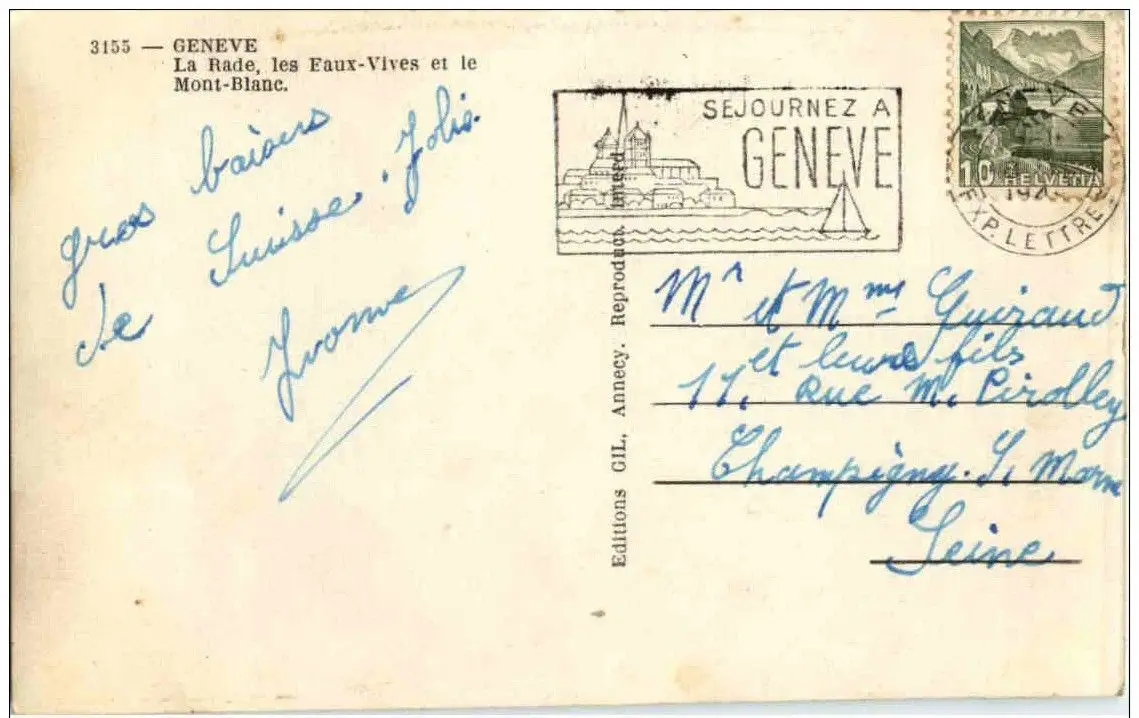 3155 — GENEVE
La Rade, les Eaux-Vives et le
Mont-Blanc.
gros baisers
de Suisse. Jolie.
Yvonne
Editions GIL, Annecy. Reproduct. interd
SEJOURNEZ A
GENEVE
10 HELVETIA
GENEVE 1
EXP. LETTRE
Mr et Mme Guiraud
et leurs fils
17. Rue M. Pirolley
Champigny. S. Marne
Seine